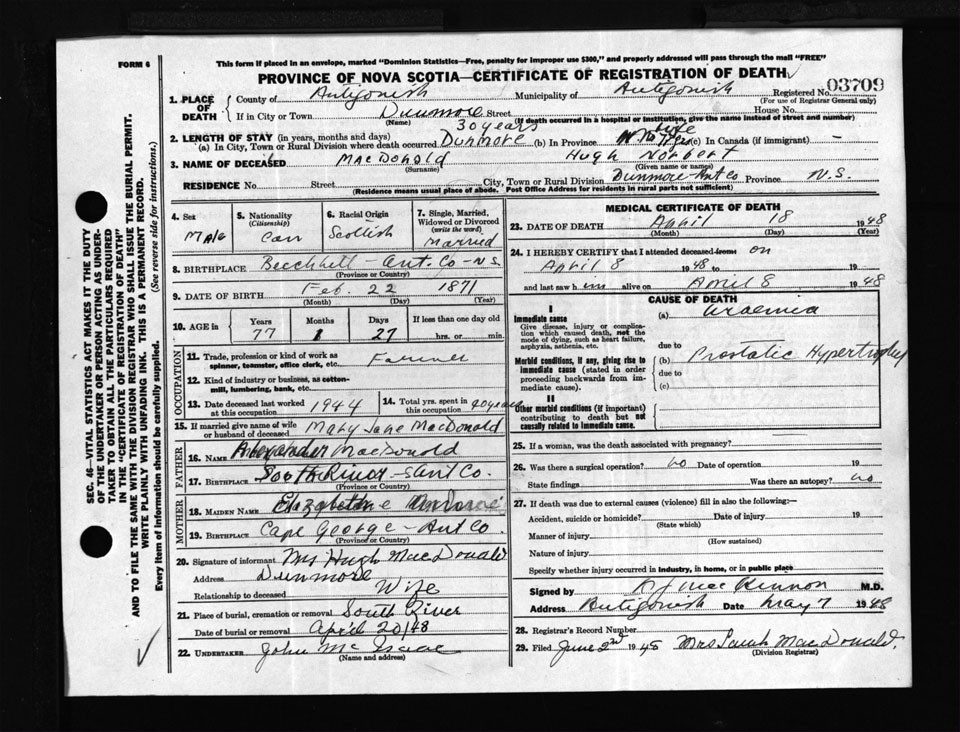 FORM 6
This form if placed in an envelope, marked "Dominion Statistics—Free, penalty for improper use $300," and properly addressed will pass through the mail "FREE"
PROVINCE OF NOVA SCOTIA—CERTIFICATE OF REGISTRATION OF DEATH
03709
1. PLACE OF DEATH County of Antigonish Municipality of Antigonish Registered No.
(For use of Registrar General only)
If in City or Town Dunmore Street House No.
(Name) (If death occurred in a hospital or institution, give the name instead of street and number)
2. LENGTH OF STAY (in years, months and days) 30 years
(a) In City, Town or Rural Division where death occurred Dunmore (b) In Province life (c) In Canada (if immigrant) —
3. NAME OF DECEASED MacDonald Hugh Norbert
(Surname) (Given name or names)
RESIDENCE No. Street City, Town or Rural Division Dunmore Ant Co Province N.S.
(Residence means usual place of abode. Post Office Address for residents in rural parts not sufficient)
4. Sex Male
5. Nationality (Citizenship) Can
6. Racial Origin Scottish
7. Single, Married, Widowed or Divorced (write the word) Married
8. BIRTHPLACE Beechhill - Ant. Co - N.S.
(Province or Country)
9. DATE OF BIRTH Feb. 22 1871
(Month) (Day) (Year)
10. AGE in Years 77 Months 1 Days 27 If less than one day old hrs. or min.
OCCUPATION
11. Trade, profession or kind of work as spinner, teamster, office clerk, etc. Farmer
12. Kind of industry or business, as cotton-mill, lumbering, bank, etc.
13. Date deceased last worked at this occupation 1944
14. Total yrs. spent in this occupation 40 years
15. If married give name of wife or husband of deceased Mary Jane MacDonald
FATHER
16. Name Alexander MacDonald
17. Birthplace South River - Ant Co.
(Province or Country)
MOTHER
18. Maiden Name
19. Birthplace Cape George - Ant Co
(Province or Country)
20. Signature of informant Mrs Hugh MacDonald
Address Dunmore
Relationship to deceased Wife
21. Place of burial, cremation or removal South River
Date of burial or removal April 20/48
22. Undertaker John McIsaac
(Name and address)
MEDICAL CERTIFICATE OF DEATH
23. DATE OF DEATH April 18 1948
(Month) (Day) (Year)
24. I HEREBY CERTIFY that I attended deceased from on
April 8 1948 to 19
and last saw him alive on April 8 1948
CAUSE OF DEATH
I
Immediate cause
Give disease, injury or complication which caused death, not the mode of dying, such as heart failure, asphyxia, asthenia, etc.
(a) Uraemia
due to
Morbid conditions, if any, giving rise to immediate cause (stated in order proceeding backwards from immediate cause).
(b) Prostatic Hypertrophy
due to
(c)
II
Other morbid conditions (if important) contributing to death but not causally related to immediate cause.
25. If a woman, was the death associated with pregnancy?
26. Was there a surgical operation? no Date of operation 19
State findings Was there an autopsy? no
27. If death was due to external causes (violence) fill in also the following:—
Accident, suicide or homicide? Date of injury 19
(State which)
Manner of injury
(How sustained)
Nature of injury
Specify whether injury occurred in industry, in home, or in public place
Signed by R J MacKinnon M.D.
Address Antigonish Date May 7 1948
28. Registrar's Record Number
29. Filed June 2nd 1948 Mrs Sarah MacDonald.
(Division Registrar)
SEC. 46—VITAL STATISTICS ACT MAKES IT THE DUTY
OF THE UNDERTAKER OR PERSON ACTING AS UNDER-
TAKER TO OBTAIN ALL THE PARTICULARS REQUIRED
IN THE "CERTIFICATE OF REGISTRATION OF DEATH"
AND TO FILE THE SAME WITH THE DIVISION REGISTRAR WHO SHALL ISSUE THE BURIAL PERMIT.
WRITE PLAINLY WITH UNFADING INK. THIS IS A PERMANENT RECORD.
Every item of information should be carefully supplied. (See reverse side for instructions.)